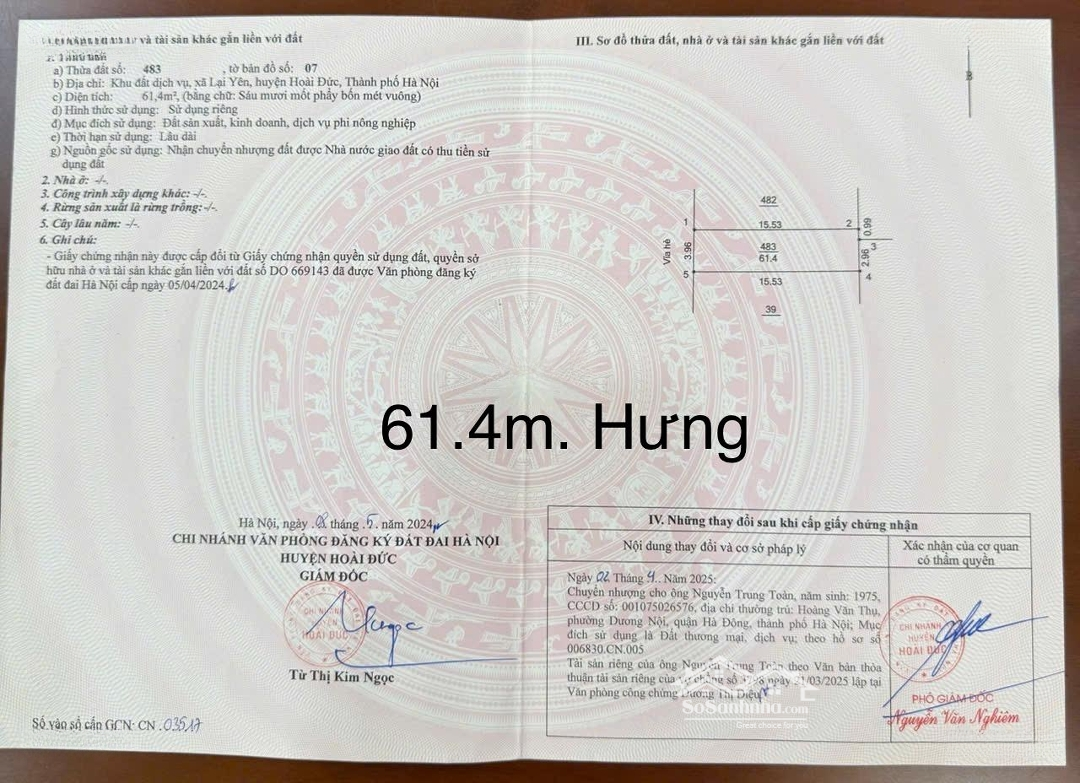 và tài sản khác gắn liền với đất
a) Thửa đất số: 483 , tờ bản đồ số: 07
b) Địa chỉ: Khu đất dịch vụ, xã Lại Yên, huyện Hoài Đức, Thành phố Hà Nội
c) Diện tích: 61,4m², (bằng chữ: Sáu mươi mốt phẩy bốn mét vuông)
d) Hình thức sử dụng: Sử dụng riêng
đ) Mục đích sử dụng: Đất sản xuất, kinh doanh, dịch vụ phi nông nghiệp
e) Thời hạn sử dụng: Lâu dài
g) Nguồn gốc sử dụng: Nhận chuyển nhượng đất được Nhà nước giao đất có thu tiền sử
dụng đất
2. Nhà ở: -/-.
3. Công trình xây dựng khác: -/-.
4. Rừng sản xuất là rừng trồng: -/-.
5. Cây lâu năm: -/-.
6. Ghi chú:
- Giấy chứng nhận này được cấp đổi từ Giấy chứng nhận quyền sử dụng đất, quyền sở
hữu nhà ở và tài sản khác gắn liền với đất số DO 669143 đã được Văn phòng đăng ký
đất đai Hà Nội cấp ngày 05/04/2024.
III. Sơ đồ thửa đất, nhà ở và tài sản khác gắn liền với đất
B
482
1
15.53
2
0.99
Vỉa hè
3.96
483
61.4
3
2.96
5
15.53
4
39
61.4m. Hưng
Hà Nội, ngày 08 tháng 5. năm 2024
CHI NHÁNH VĂN PHÒNG ĐĂNG KÝ ĐẤT ĐAI HÀ NỘI
HUYỆN HOÀI ĐỨC
GIÁM ĐỐC
CHI NHÁNH
HUYỆN
HOÀI ĐỨC
Ngọc
Từ Thị Kim Ngọc
Số vào sổ cấp GCN: CN .03517
IV. Những thay đổi sau khi cấp giấy chứng nhận
Nội dung thay đổi và cơ sở pháp lý
Xác nhận của cơ quan
có thẩm quyền
Ngày 02 Tháng 4.. Năm 2025:
Chuyển nhượng cho ông Nguyễn Trung Toàn, năm sinh: 1975,
CCCD số: 001075026576, địa chỉ thường trú: Hoàng Văn Thụ,
phường Dương Nội, quận Hà Đông, thành phố Hà Nội; Mục
đích sử dụng là Đất thương mại, dịch vụ; theo hồ sơ số
006830.CN.005
Tài sản riêng của ông Nguyễn Trung Toàn theo Văn bản thỏa
thuận tài sản riêng của vợ chồng số ngày 31/03/2025 lập tại
Văn phòng công chứng Dương Thị Diệu
CHI NHÁNH
HUYỆN
HOÀI ĐỨC
PHÓ GIÁM ĐỐC
Nguyễn Văn Nghiêm
SoSanhnha.com
Great choice for you